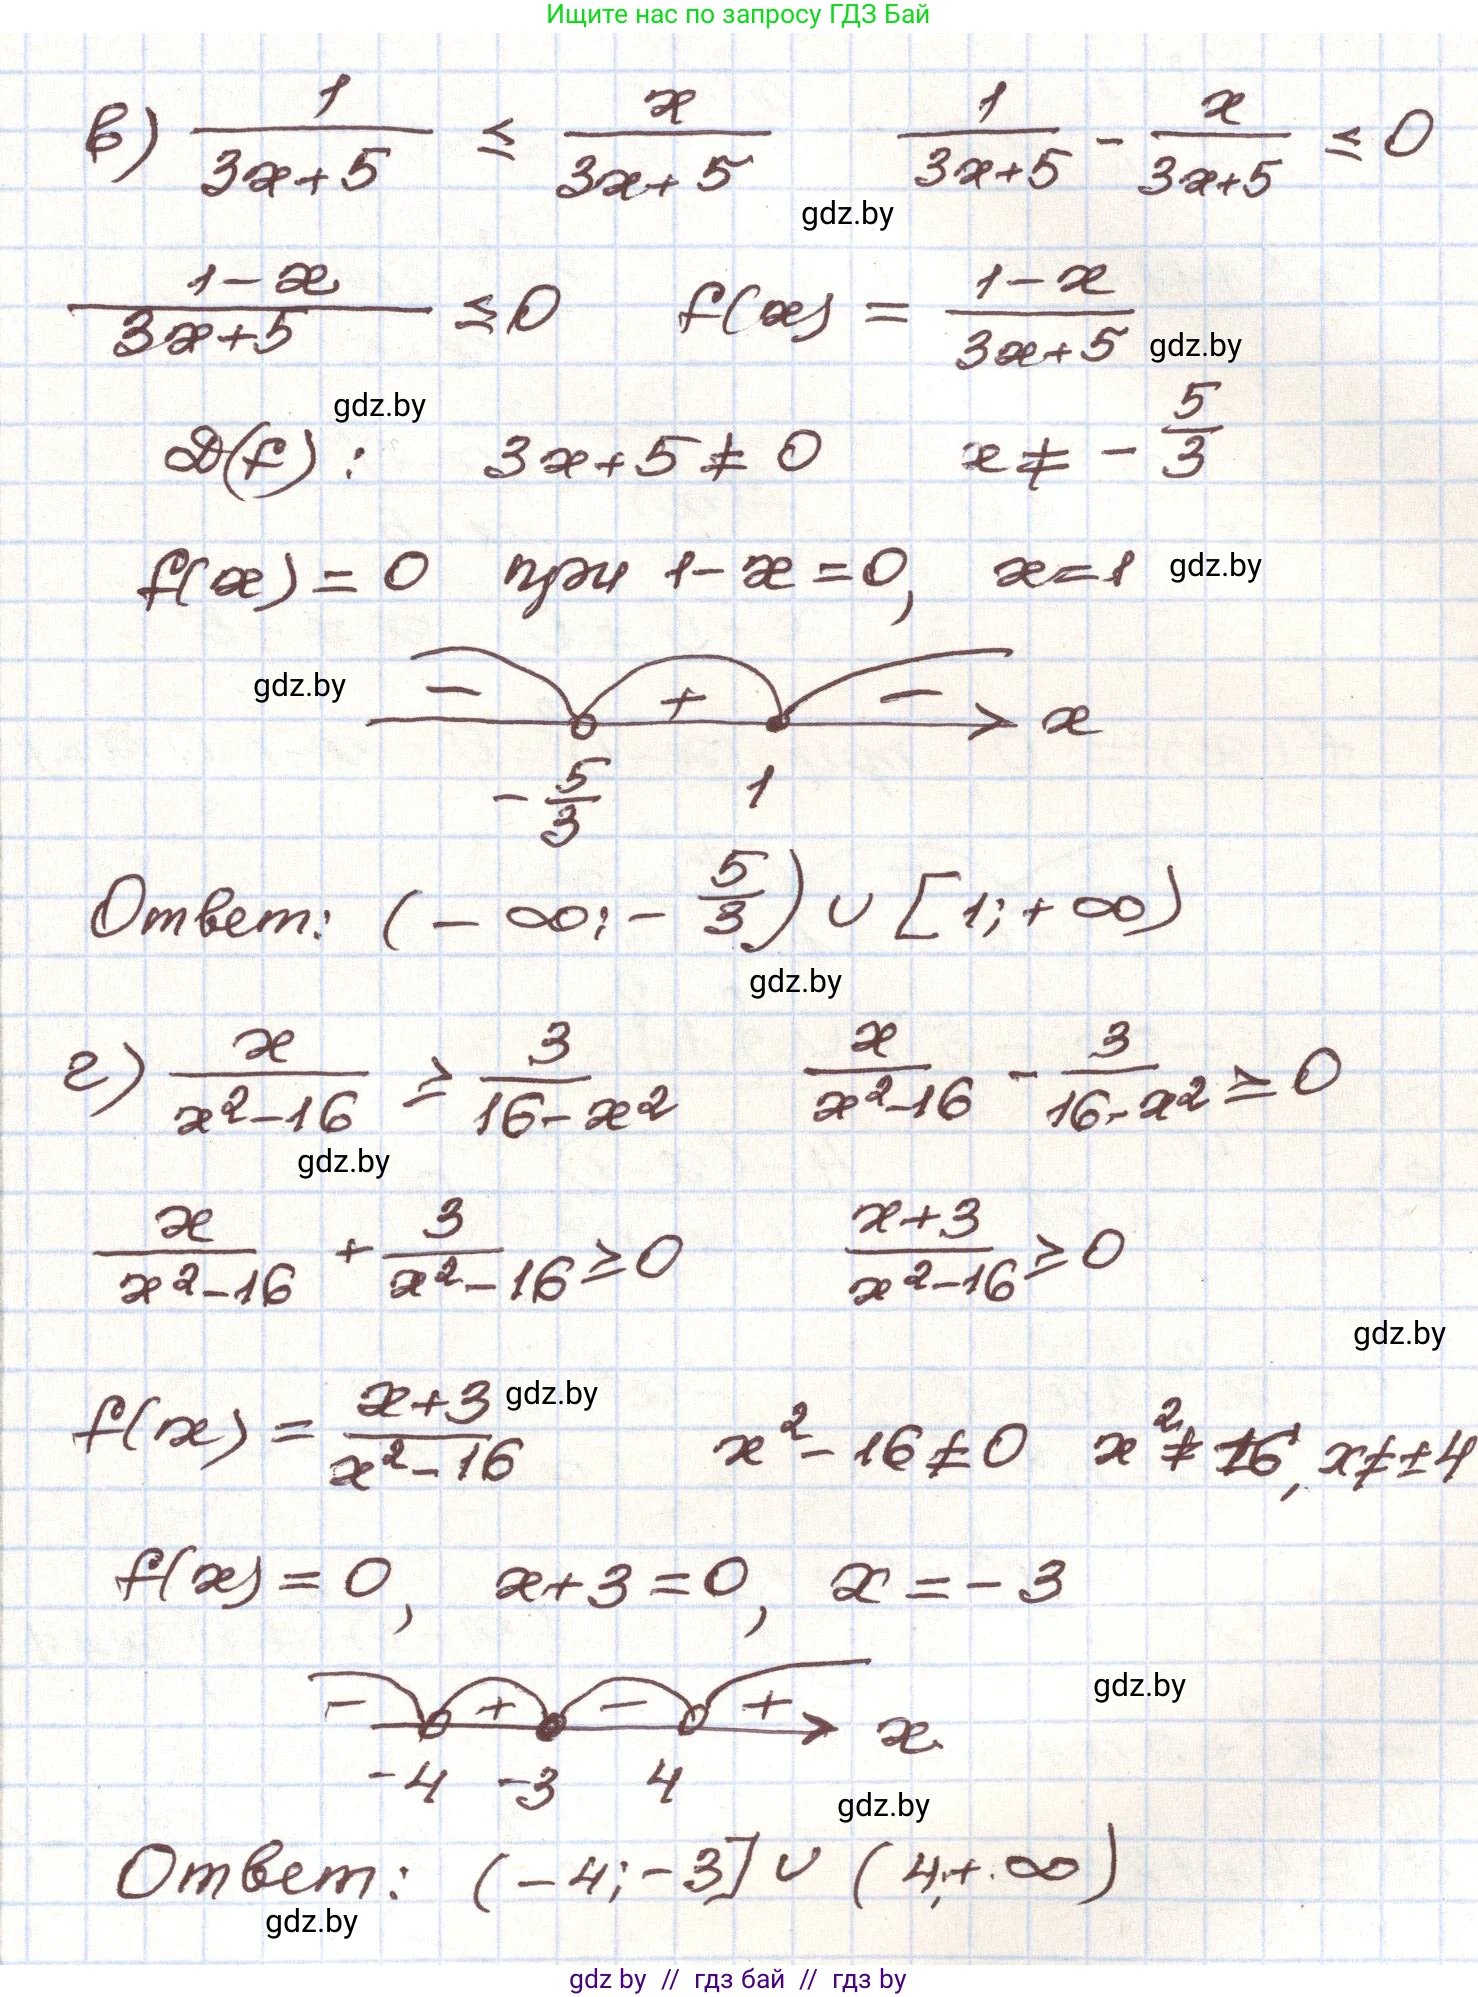 Ищите нас по запросу ГДЗ Бай
в) 1/(3x+5) ≤ x/(3x+5)   1/(3x+5) - x/(3x+5) ≤ 0
gdz.by
(1-x)/(3x+5) ≤ 0   f(x) = (1-x)/(3x+5)
gdz.by
gdz.by
D(f) :   3x+5 ≠ 0   x ≠ -5/3
f(x) = 0 при 1-x=0, x=1 gdz.by
gdz.by
- + - x
-5/3   1
Ответ: (-∞; -5/3) ∪ [1; +∞)
gdz.by
г) x/(x²-16) ≥ 3/(16-x²)   x/(x²-16) - 3/(16-x²) ≥ 0
gdz.by
x/(x²-16) + 3/(x²-16) ≥ 0   (x+3)/(x²-16) ≥ 0
gdz.by
f(x) = (x+3)/(x²-16) gdz.by   x²-16 ≠ 0   x² ≠ 16, x ≠ ±4
f(x) = 0, x+3=0, x=-3
gdz.by
- + - + x
-4 -3 4
gdz.by
Ответ: (-4; -3] ∪ (4; +∞)
gdz.by
gdz by // гдз бай // гдз by